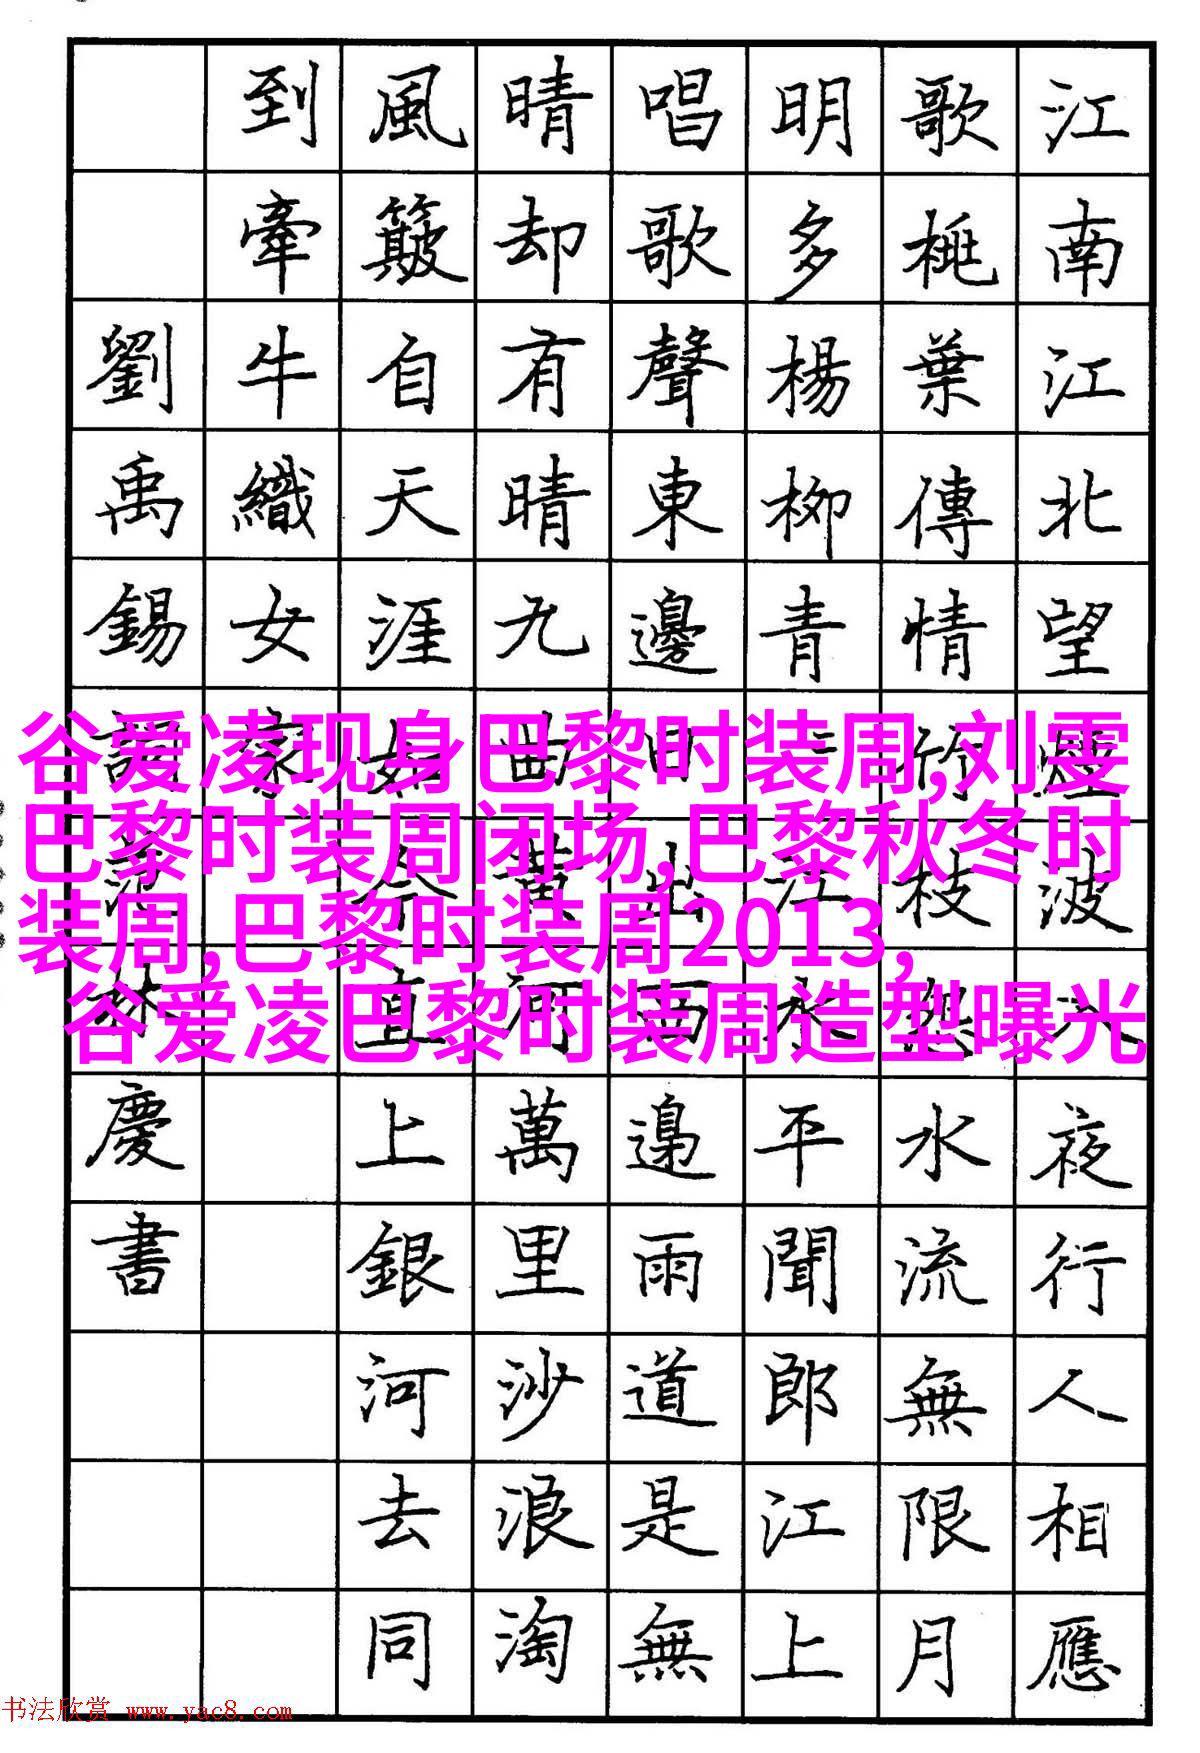 江南江北望煙波入夜行人相應
歌桃葉傳情竹枝怨水流無限月
明多楊柳青青江水平聞郎江上
唱歌聲東邊日出西邊雨道是無
晴却有晴九曲黃河萬里沙浪淘
風簸自天涯如今直上銀河去同
到牽牛織女家
劉禹錫林慶書
谷爱凌现身巴黎时装周,刘雯
巴黎时装周闭场,巴黎秋冬时
装周,巴黎时装周2013,
谷爱凌巴黎时装周造型曝光
书法欣赏 www.yac8.com